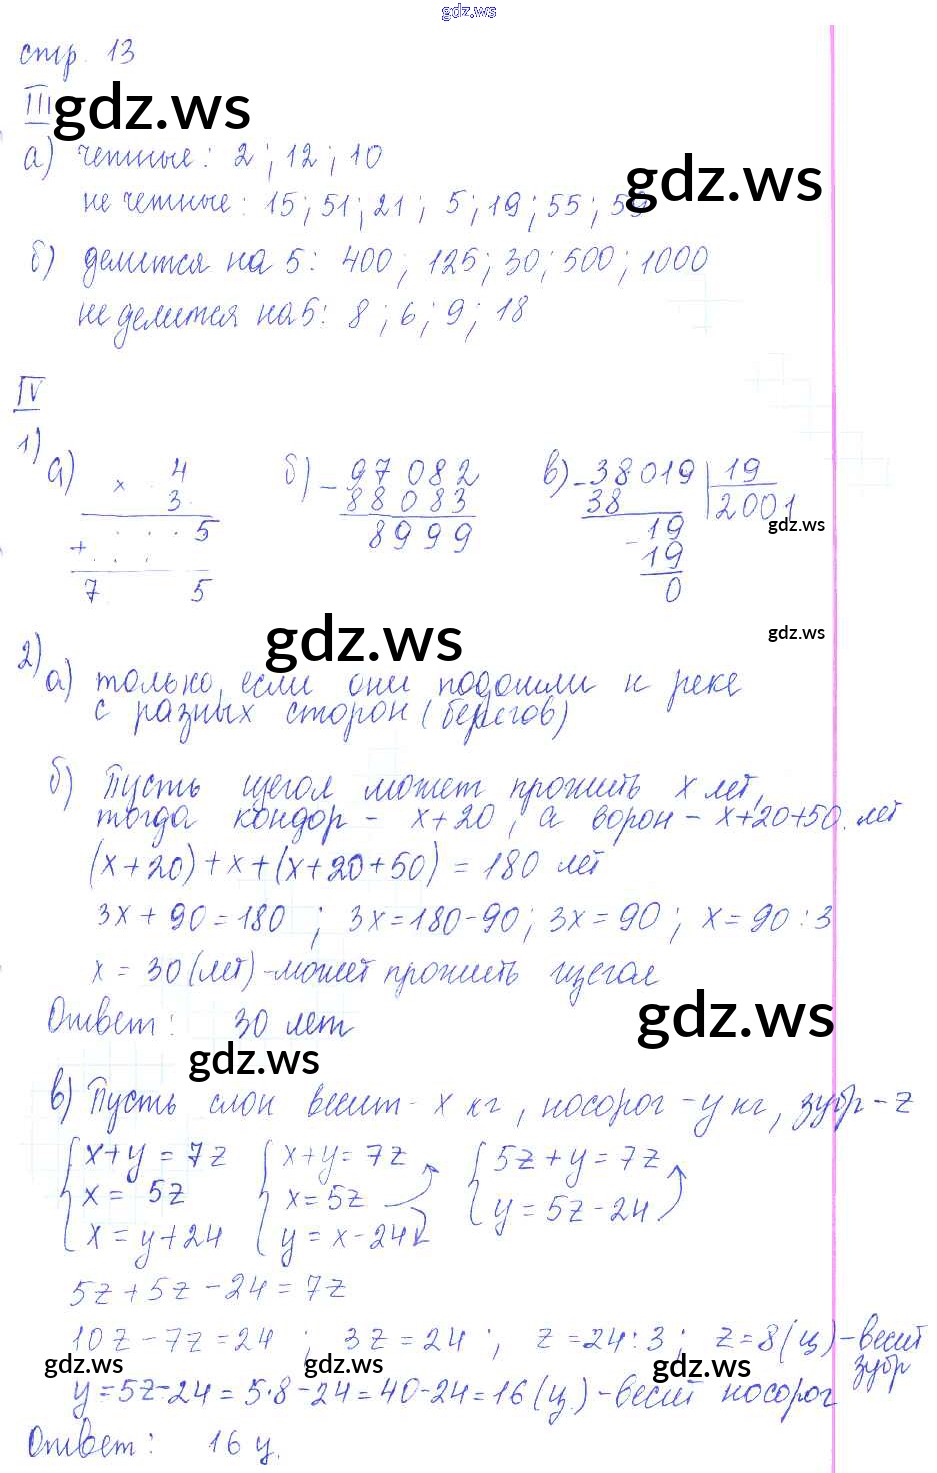 gdz.ws
стр. 13
III
gdz.ws
а) четные: 2; 12; 10
gdz.ws
не четные: 15; 51; 21; 5; 19; 55; 59
б) делится на 5: 400; 125; 30; 500; 1000
не делится на 5: 8; 6; 9; 18
IV
1)
а) × 4
3
. . . 5
+ . . .
7 5
б) - 97082
88083
8999
в) - 38019 | 19
38 2001
gdz.ws
- 19
19
0
gdz.ws
gdz.ws
2)
а) только, если они подошли к реке
с разных сторон (берегов)
б) Пусть щегол может прожить x лет,
тогда кондор - x+20, а ворон - x+20+50 лет
(x+20)+x+(x+20+50) = 180 лет
3x+90=180; 3x=180-90; 3x=90; x=90:3
x = 30 (лет) - может прожить щегол
gdz.ws
Ответ: 30 лет
gdz.ws
в) Пусть слон весит - x кг, носорог - y кг, зубр - z
{ x+y = 7z { x+y = 7z { 5z+y = 7z
x = 5z x = 5z y = 5z-24
x = y+24 y = x-24
5z+5z-24=7z
10z-7z=24; 3z=24; z=24:3; z=8(ц)-весит
зубр
gdz.ws gdz.ws gdz.ws
y=5z-24=5·8-24=40-24=16(ц.)-весит носорог
Ответ: 16 ц.